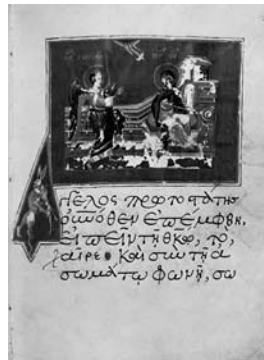 γγελος πρωτοστάτης
οὐνόθεν ἐπέμφθη,
εἰπεῖν τῆ θκω, τὸ,
χαῖρε· καὶ σὺν τῆ ἀ
σωμάτω φωνῆ, σω